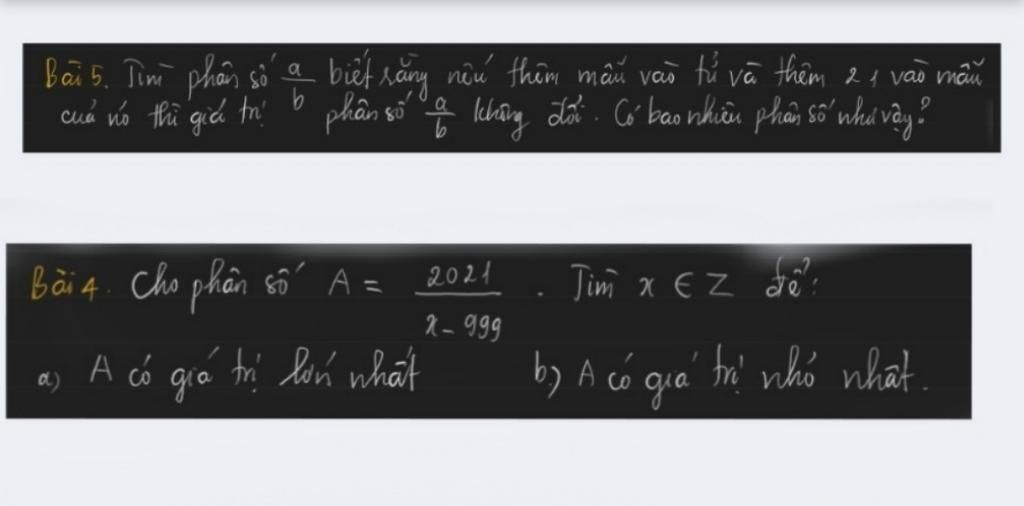 Bài 5. Tìm phân số a/b biết rằng nếu thêm mẫu vào tử và thêm 21 vào mẫu
của nó thì giá trị phân số a/b không đổi. Có bao nhiêu phân số như vậy?
Bài 4. Cho phân số A = 2021/(x - 999). Tìm x ∈ Z để:
a) A có giá trị lớn nhất b) A có giá trị nhỏ nhất.